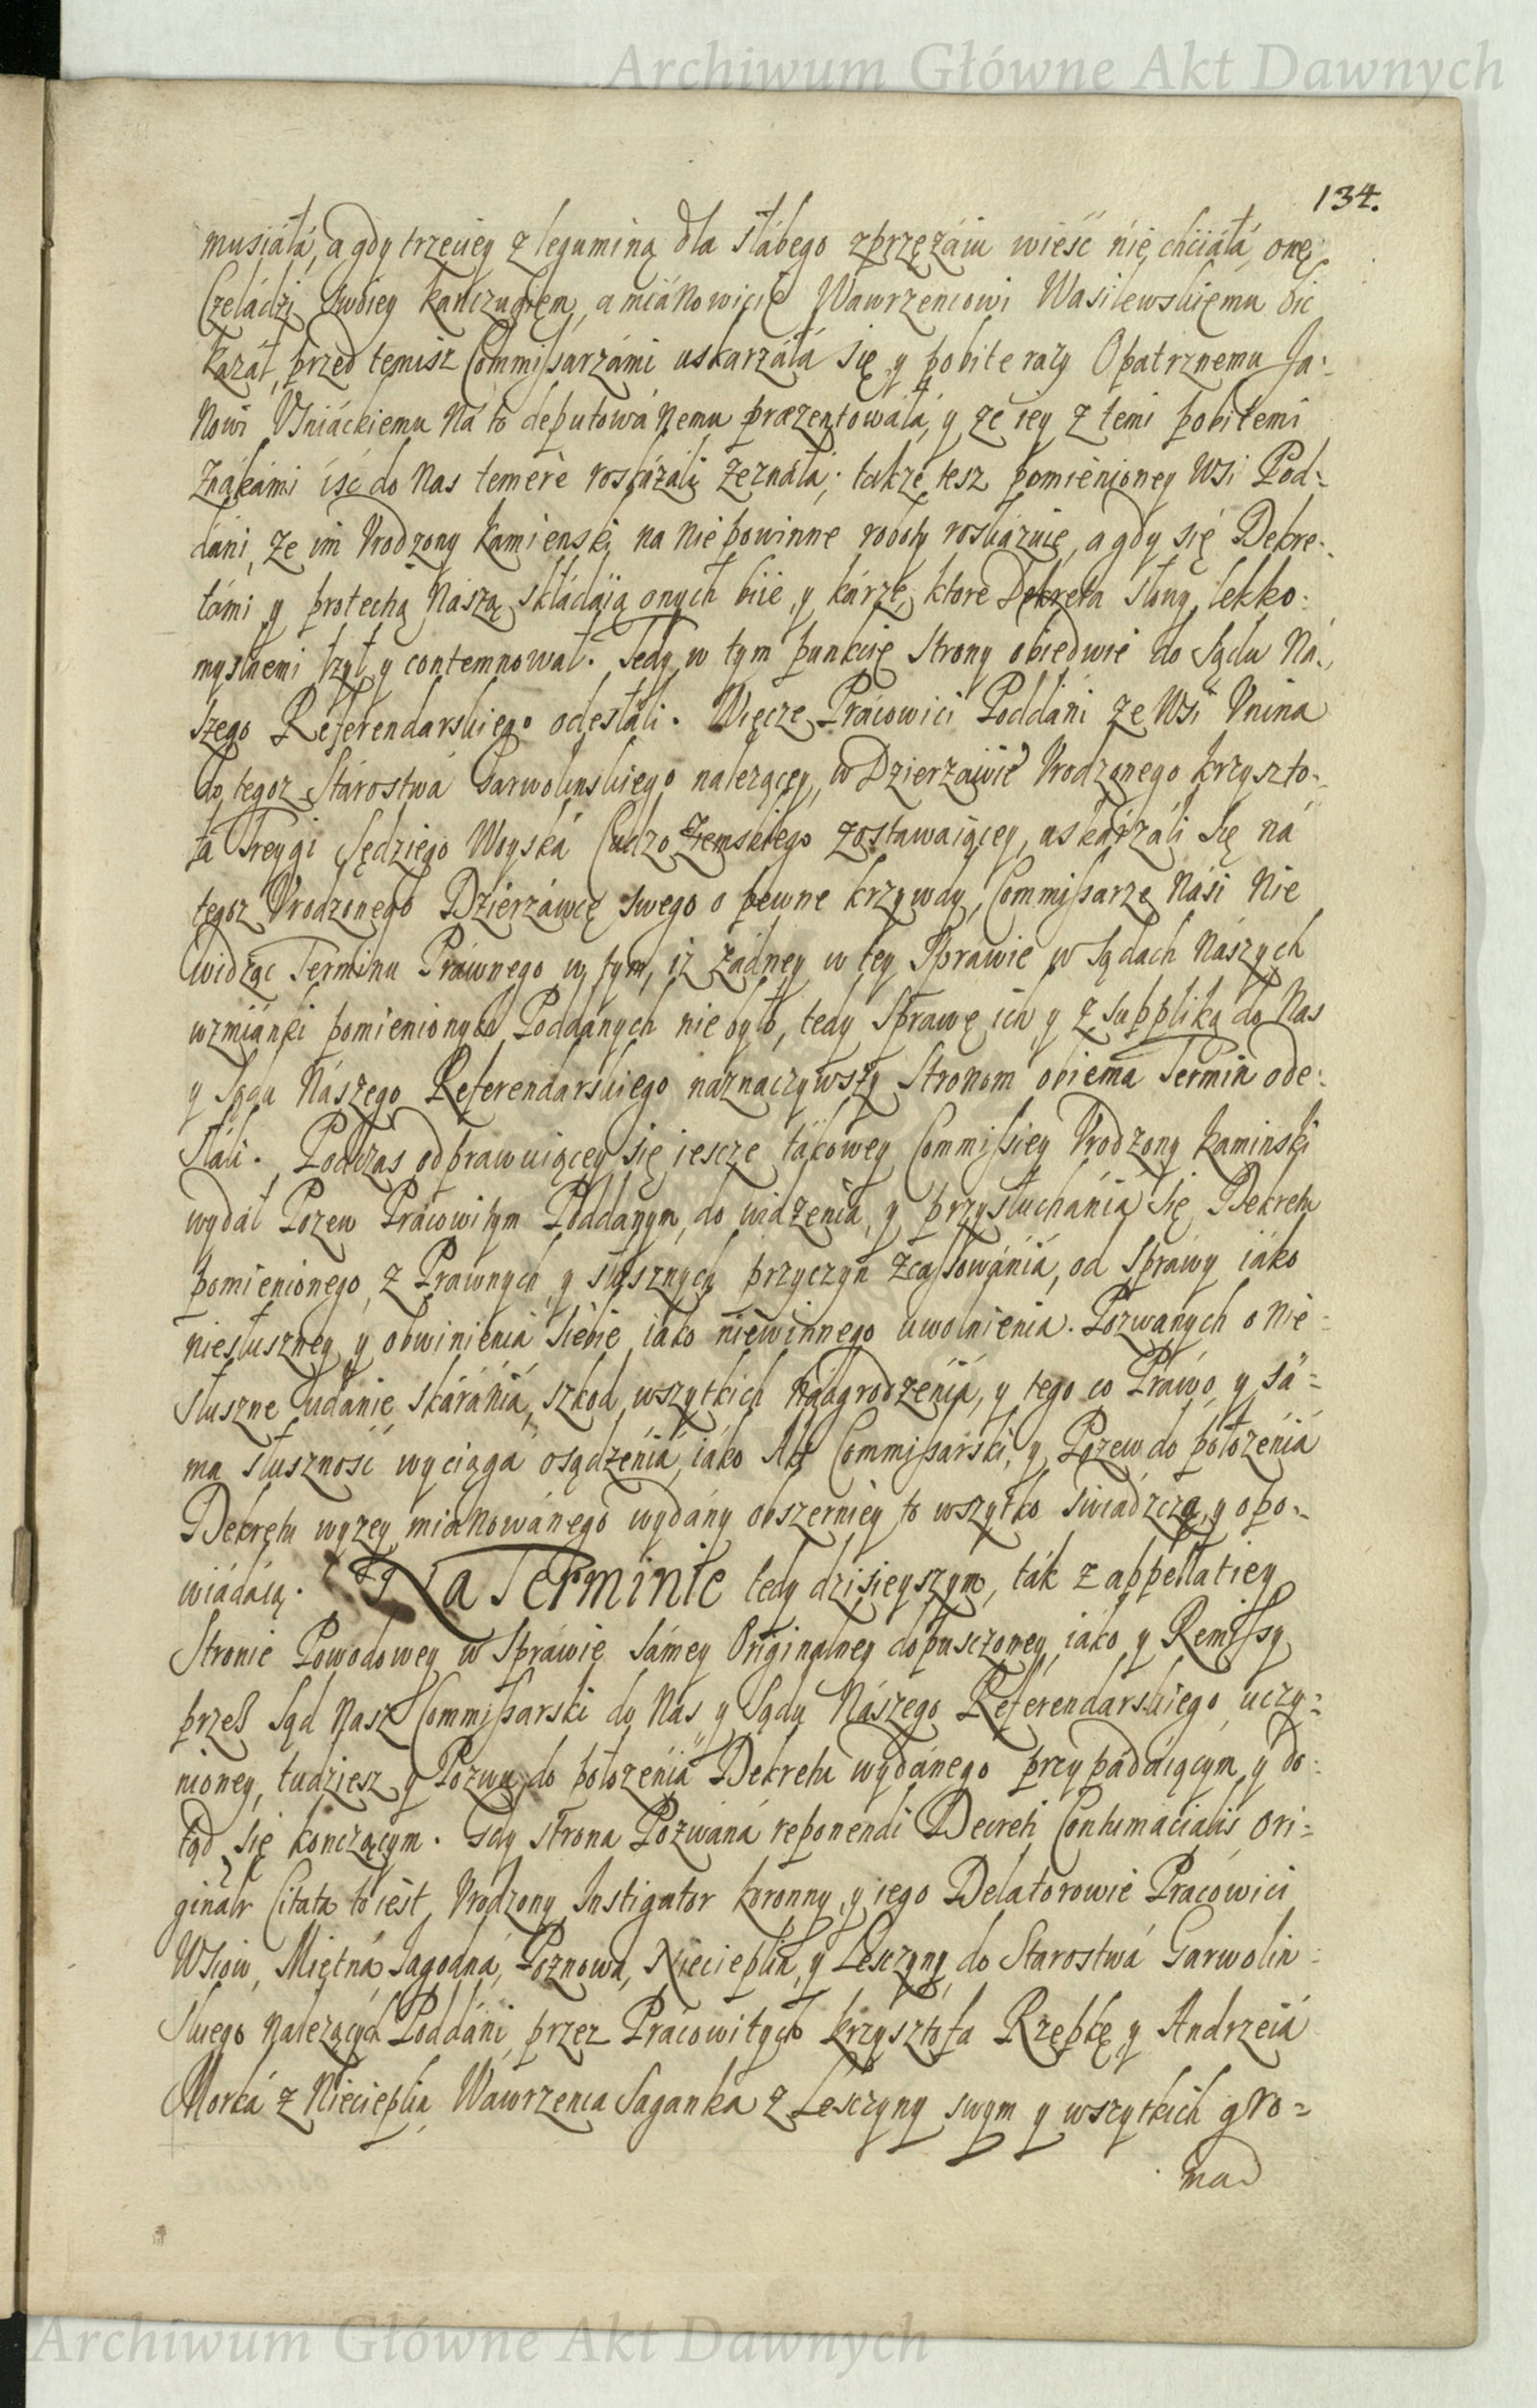 Archiwum Główne Akt Dawnych
134.
musiáłá, a gdy trzeciey z leguminą dla słábego zprzęzáiu wieść nie chciáłá, onę
Czeládzi swoiey kańczugiem, a miánowicie Wawrzeńcowi Wasilewskiemu bić
kazáł, przed temisz Commissarzámi uskarzáłá się, y pobite razy Opatrznemu Ja-
nowi Uniáckiemu ná to deputowánemu præzentowáłá, y ze iey z temi pobitemi
znákámi iść do Nas temerè roskázáli zeznáłá; takze tesz pomienioney Wsi Pod-
dáni, ze im Urodzony Kamienski na niepowinne roboty roskázuie, a gdy się Dekre-
támi y protectią Nászą skłádáią onych biie, y kárze, ktore Dekreta słowy lekko-
myslnemi lzył y contemnował. Tedy w tym punkcie Strony obiedwie do Sądu Ná-
szego Referendarskiego odesłáli. Więcze Prácowici Poddáni ze Wsi Unina
do tegoz Stárostwá Garwolinskiego nalezącey, w Dzierzáwie Urodzonego Krzyszto-
fa Freygi Sędziego Woyská Cudzoziemskiego zostawáiącey, uskárzáli się ná
tegoz Urodzonego Dzierzáwcę swego o pewne krzywdy, Commissarze Nási nie
widząc Terminu Práwnego w tym, iz zádney w tey Spráwie w Sądach Nászych
wzmiánki pomienionych Poddánych nie było, tedy Spráwę ich y z suppliką do Nas
y Sądu Nászego Referendarskiego náznáczywszy Stronom obiema Termin ode-
słáli. Podczas odpráwuiącey się iescze tákowey Commissiey Urodzony Kaminski
wydáł Pozew Prácowitym Poddánym, do widzenia, y przysłuchániá się Dekretu
pomienionego, z Prawnych y słusznych przyczyn zcassowániá, od Spráwy iáko
niesłuszney y obwinienia siebie iáko niewinnego uwolnienia. Pozwanych o nie-
słuszne udánie skárániá, szkod wszytkich nádgrodzeniá, y tego co Práwo y sá-
ma słuszność wyciągá osądzeniá, iáko Akt Commissarski, y Pozew do położeniá
Dekretu wyzey miánowánego wydány obszerniey to wszytko swiadczą, y opo-
wiádáią. Na Terminie tedy dzisieyszym, ták z appellatiey
Stronie Powodowey w Spráwie sámey Originalney dopusczoney, iáko y Remissy
przes Sąd Nasz Commissarski do Nas y Sądu Nászego Referendarskiego uczy-
nioney, tudziesz y Pozwu do położeniá Dekretu wydánego przypádáiącym, y do-
tąd się konczącym. Gdy strona Pozwáná reponendi Decreti Contumacialis ori-
ginalr Citata to iest Urodzony Instigator Koronny, y iego Delatorowie Prácowici
Wsiow, Miętná, Jagodná, Poznowa, Niecieplin, y Lesczyny, do Starostwá Garwolin-
skiego nalezących Poddáni, przez Prácowitych Krzysztofa Rzepkę, y Andrzeiá
Morká z Niecieplin, Wáwrzenca Saganka z Lesczyny swym y wszytkich gro-
mad
Archiwum Główne Akt Dawnych